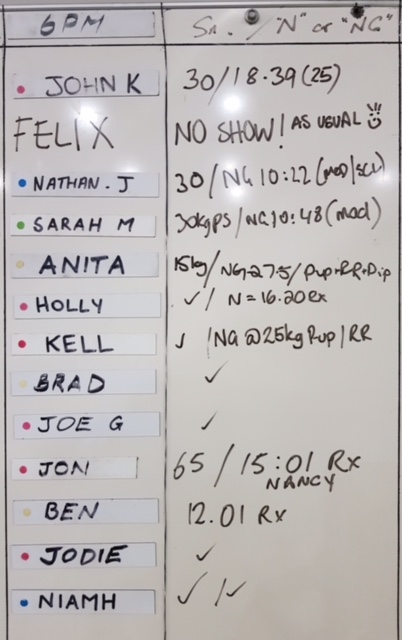 6PM Sn. / "N" or "NG"
JOHN K 30/18.39 (25)
FELIX NO SHOW! AS USUAL
NATHAN. J 30/NG 10:22 (mod/scl)
SARAH M 30kg PS/NG 10:48 (mod)
ANITA 15kg/NG-27.5/Pup+RR+Dip
HOLLY ✓/ N=16.20 Rx
KELL ✓ /NG @25kg Pup/RR
BRAD ✓
JOE G ✓
JON 65 / 15:01 Rx
NANCY
BEN 12.01 Rx
JODIE ✓
NIAMH ✓ /✓